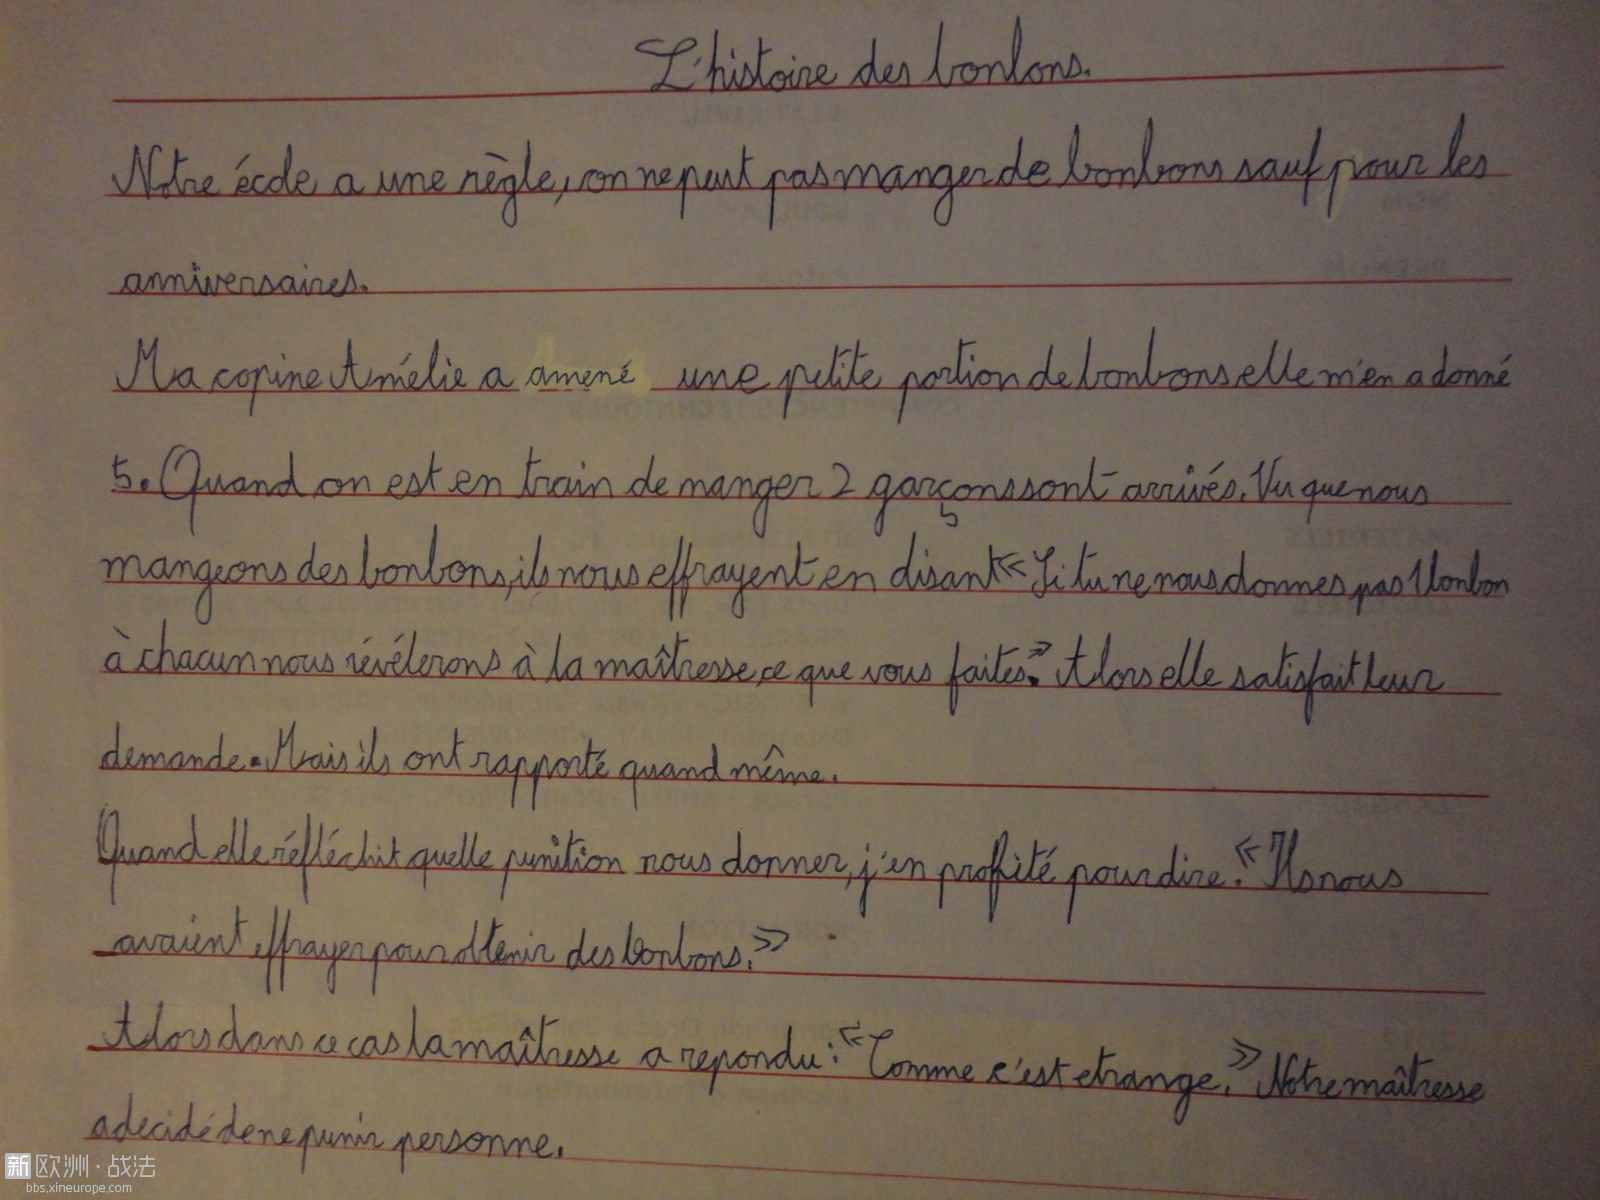 L'histoire des bonbons.
Notre école a une règle, on ne peut pas manger de bonbons sauf pour les
anniversaires.
Ma copine Amélie a amené une petite portion de bonbons elle m'en a donné
5. Quand on est en train de manger 2 garçons sont arrivés. Vu que nous
mangeons des bonbons, ils nous effrayent en disant « Si tu ne nous donnes pas 1 bonbon
à chacun nous révélerons à la maîtresse, ce que vous faites. » Alors elle satisfait leur
demande. Mais ils ont rapporté quand même.
Quand elle réfléchit quelle punition nous donner, j'en profité pour dire. « Ils nous
avaient effrayer pour obtenir des bonbons. »
Alors dans ce cas la maîtresse a repondu : « Comme c'est etrange. » Notre maîtresse
a decidé de ne punir personne.
新欧洲·战法
bbs.xineurope.com